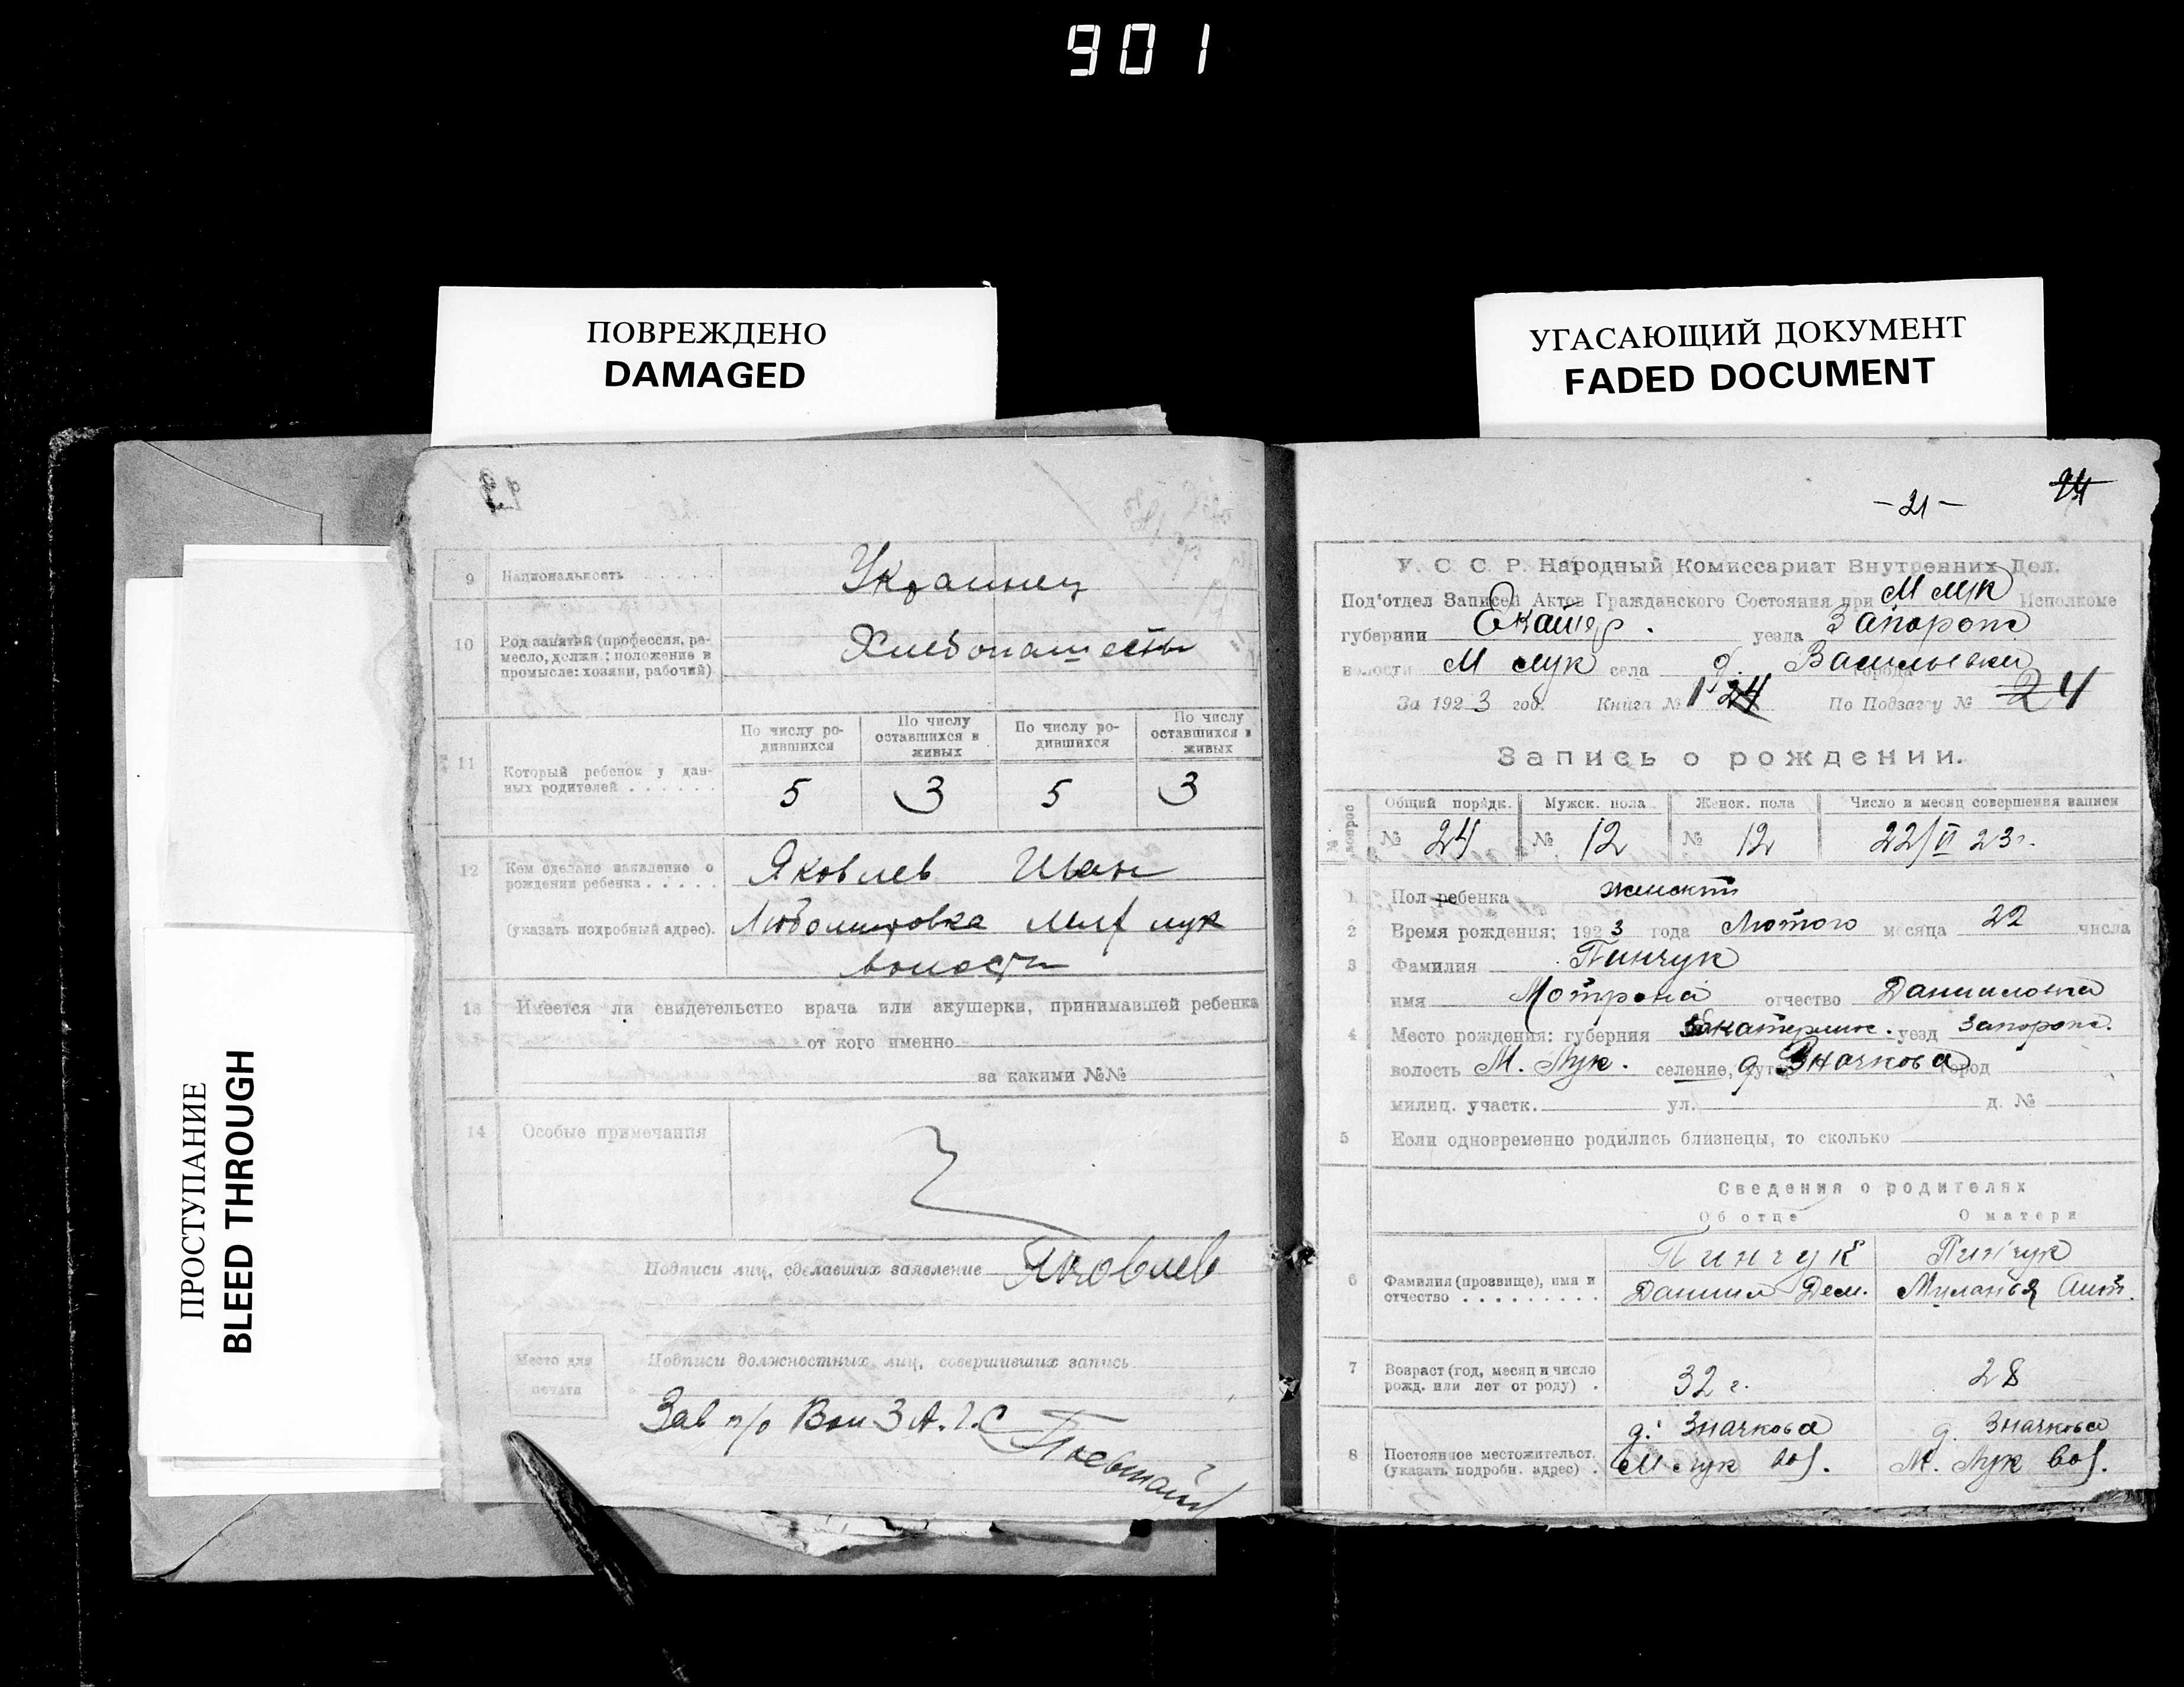 901
ПОВРЕЖДЕНО
DAMAGED
УГАСАЮЩИЙ ДОКУМЕНТ
FADED DOCUMENT
ПРОСТУПАНИЕ
BLEED THROUGH
23
9 Национальность Украинец
10 Род занятий (профессия, ре-
месло, должн.: положение в
промысле: хозяин, рабочий)
По числу ро-
дившихся
По числу
оставшихся в
живых
По числу ро-
дившихся
По числу
оставшихся в
живых
11 Который ребенок у дан-
ных родителей
5 3 5 3
12 Кем сделано заявление о
рождении ребенка
Яковлев Иван
(указать подробный адрес).
волости
13 Имеется ли свидетельство врача или акушерки, принимавшей ребенка
от кого именно
за какими №№
14 Особые примечания
Подписи лиц, сделавших заявление Яковлев
Место для
печати
Подписи должностных лиц, совершивших запись
Зав п/о Вол З А. Г. С
- 21 - 24
У. С. С. Р. Народный Комиссариат Внутренних Дел.
Под'отдел Записей Актов Гражданского Состояния при М Лук Исполкоме
губернии Екатер. уезда Запорож
волости М Лук села д. Васильевки города
За 1923 год. Книга № 1 24 По Подзагсу № 24
Запись о рождении.
№ вопрос
Общий порядк. Мужск. пола Женск. пола Число и месяц совершения записи
№ 24 № 12 № 12 22/II 23г.
1 Пол ребенка женский
2 Время рождения: 1923 года Лютого месяца 22 числа
3 Фамилия Пинчук
имя Мотрона отчество Данииловна
4 Место рождения: губерния Екатеринос. уезд Запорож.
волость М. Лук. селение, хутор д Значкова город
милиц. участк. ул. д. №
5 Если одновременно родились близнецы, то сколько
Сведения о родителях
Об отце О матери
6 Фамилия (прозвище), имя и
отчество
Пинчук
Даниил Дем.
Пинчук
Миланья Ант.
7 Возраст (год, месяц и число
рожд. или лет от роду)
32 г. 28
8 Постоянное местожительст.
(указать подробн. адрес)
д. Значкова
М Лук вол.
д. Значкова
М. Лук вол.